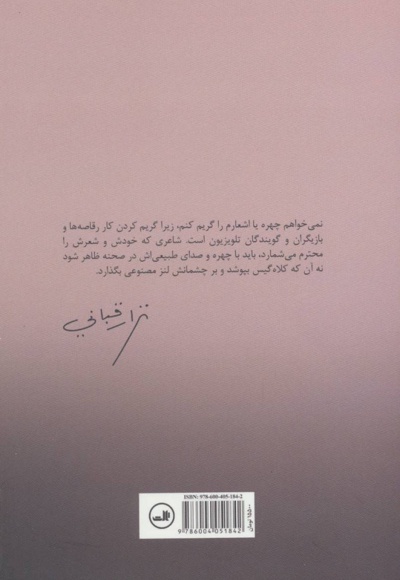 نمی‌خواهم چهره یا اشعارم را گریم کنم، زیرا گریم کردن کار رقاصه‌ها و
بازیگران و گویندگان تلویزیون است. شاعری که خودش و شعرش را
محترم می‌شمارد، باید با چهره و صدای طبیعی‌اش در صحنه ظاهر شود
نه آن که کلاه‌گیس بپوشد و بر چشمانش لنز مصنوعی بگذارد.
نزار قباني
ISBN: 978-600-405-184-2
9 786004 051842
تومان